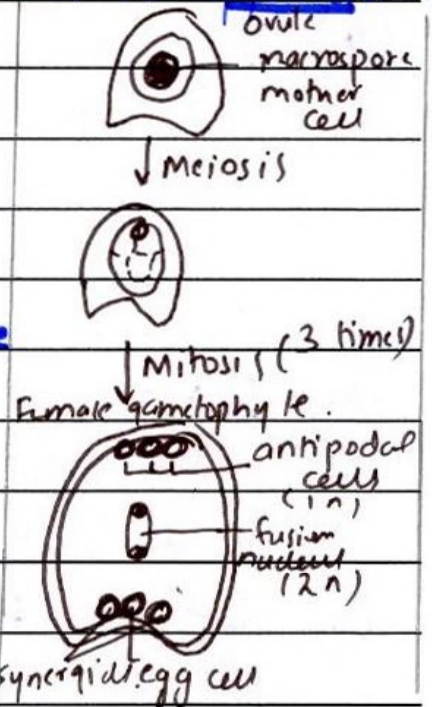 ovule
macrospore
mother
cell
Meiosis
Mitosis (3 times)
Female gametophyte.
antipodal
cells
(1n)
fusion
nucleus
(2n)
synergids egg cell